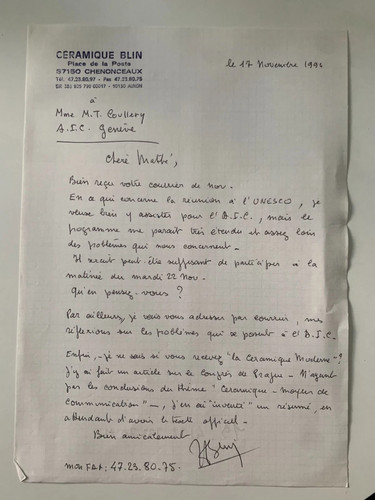 CERAMIQUE BLIN
Place de la Poste
37150 CHENONCEAUX
Tél. 47.23.80.97 - Fax 47.23.80.75
le 17 Novembre 1994
à
Mme M.T. Coullery
A.I.C. Genève
Chère Mathé,
Bien reçu votre courrier de nov.
En ce qui concerne la réunion à l'UNESCO, je
veux bien y assister pour l'A.I.C., mais le
programme me paraît très étendu et assez loin
des problèmes qui nous concernent -
Il serait peut-être suffisant de participer à la
matinée du mardi 22 Nov.
Qu'en pensez-vous ?
Par ailleurs, je vais vous adresser par courrier, mes
réflexions sur les problèmes qui se posent à l'A.I.C.
Enfin, - je ne sais si vous recevez "la Céramique Moderne" ?
J'y ai fait un article sur le Congrès de Prague - N'ayant
pas les conclusions du thème : "Céramique - moyen de
communication" -, j'en ai "inventé" un résumé, en
attendant d'avoir le texte officiel -
Bien amicalement
mon FAX : 47.23.80.75.